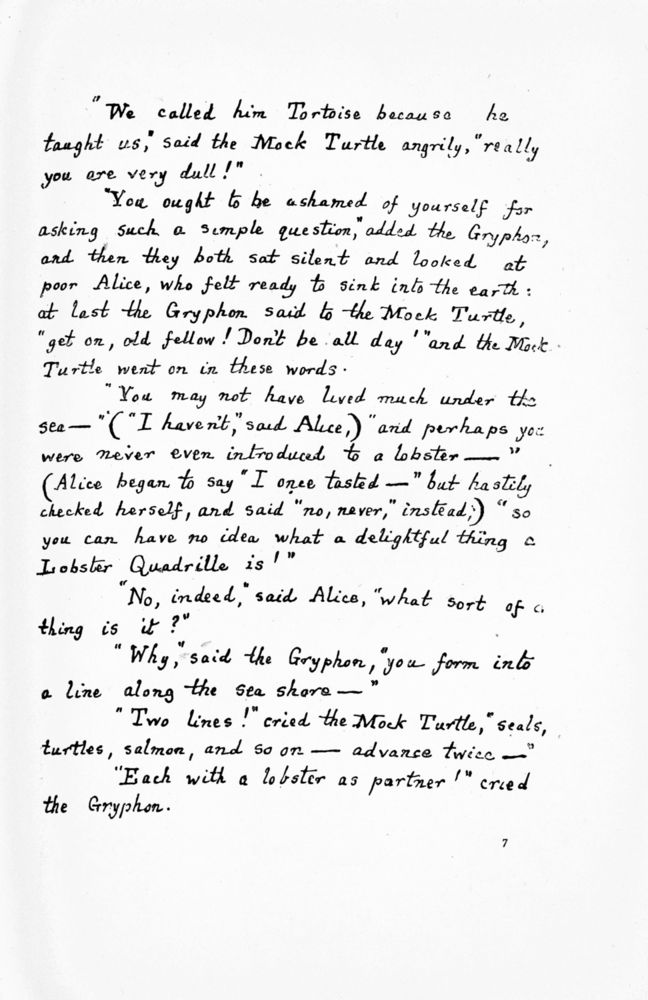 "We called him Tortoise because he
taught us," said the Mock Turtle angrily, "really
you are very dull!"
"You ought to be ashamed of yourself for
asking such a simple question," added the Gryphon,
and then they both sat silent and looked at
poor Alice, who felt ready to sink into the earth:
at last the Gryphon said to the Mock Turtle,
"get on, old fellow! Don't be all day!" and the Mock
Turtle went on in these words.
"You may not have lived much under the
sea—" ("I haven't," said Alice,) "and perhaps you
were never even introduced to a lobster—"
(Alice began to say "I once tasted—" but hastily
checked herself, and said "no, never," instead,) "so
you can have no idea what a delightful thing a
Lobster Quadrille is!"
"No, indeed," said Alice, "what sort of a
thing is it?"
"Why," said the Gryphon, "you form into
a line along the sea shore—"
"Two lines!" cried the Mock Turtle, "seals,
turtles, salmon, and so on — advance twice —"
"Each with a lobster as partner!" cried
the Gryphon.
7